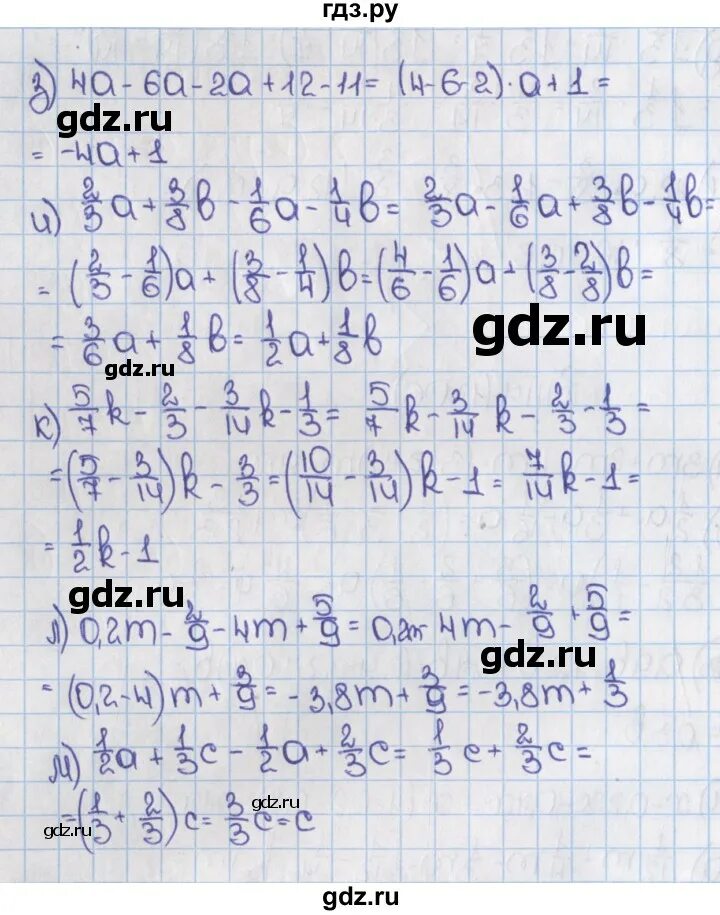 гдз.ру
з) 4a - 6a - 2a + 12 - 11 = (4-6-2)·a + 1 =
gdz.ru
= -4a + 1
и) 2/3 a + 3/8 b - 1/6 a - 1/4 b = 2/3 a - 1/6 a + 3/8 b - 1/4 b =
= (2/3 - 1/6)a + (3/8 - 1/4)b = (4/6 - 1/6)a + (3/8 - 2/8)b =
gdz.ru
= 3/6 a + 1/8 b = 1/2 a + 1/8 b
gdz.ru
к) 5/7 k - 2/3 - 3/14 k - 1/3 = 5/7 k - 3/14 k - 2/3 - 1/3 =
= (5/7 - 3/14)k - 3/3 = (10/14 - 3/14)k - 1 = 7/14 k - 1 =
= 1/2 k - 1
gdz.ru
л) 0,2m - 2/9 - 4m + 5/9 = 0,2m - 4m - 2/9 + 5/9 =
gdz.ru
= (0,2-4)m + 3/9 = -3,8m + 3/9 = -3,8m + 1/3
м) 1/2 a + 1/3 c - 1/2 a + 2/3 c = 1/3 c + 2/3 c =
gdz.ru
= (1/3 + 2/3)c = 3/3 c = c
gdz.ru
gdz.ru